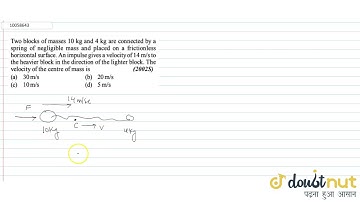 10058643
Two blocks of masses 10 kg and 4 kg are connected by a
spring of negligible mass and placed on a frictionless
horizontal surface. An impulse gives a velocity of 14 m/s to
the heavier block in the direction of the lighter block. The
velocity of the centre of mass is (2002S)
(a) 30 m/s (b) 20 m/s
(c) 10 m/s (d) 5 m/s
14 m/sec
F
C → V
10kg
4kg
doubtnut
पढ़ना हुआ आसान